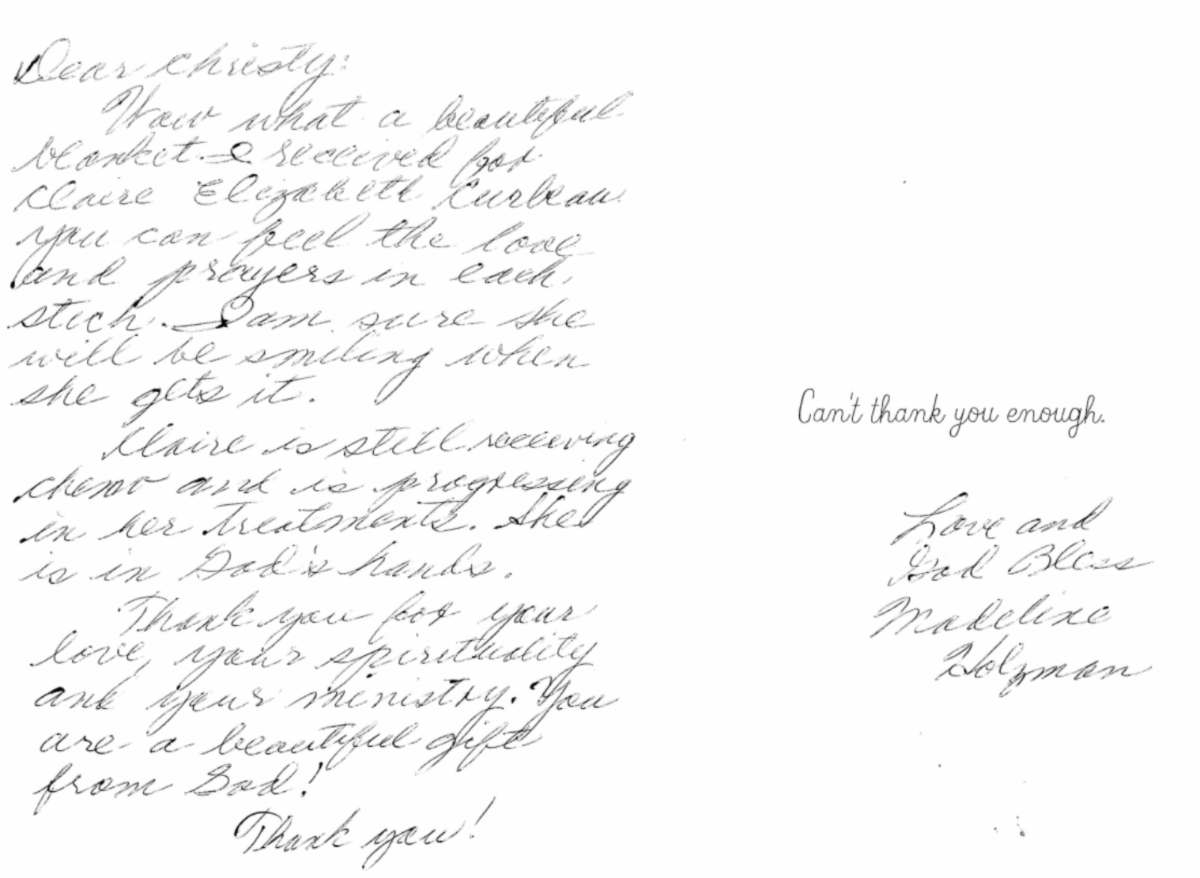 Dear Christy:
Wow what a beautiful
blanket. I received for
Claire Elizabeth Curbeau
you can feel the love
and prayers in each
stich. I am sure she
will be smiling when
she gets it.
Claire is still receiving
chemo and is progressing
in her treatments. She
is in God's hands.
Thank you for your
love, your spirituality
and your ministry. You
are a beautiful gift
from God!
Thank you!
Can't thank you enough.
Love and
God Bless
Madeline
Holzman